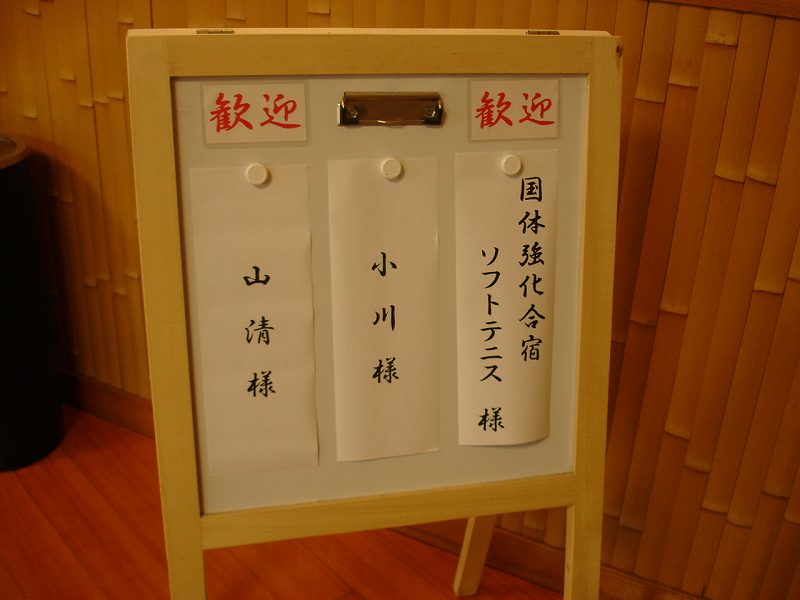 歓迎
歓迎
国体強化合宿
ソフトテニス 様
小川様
山清様